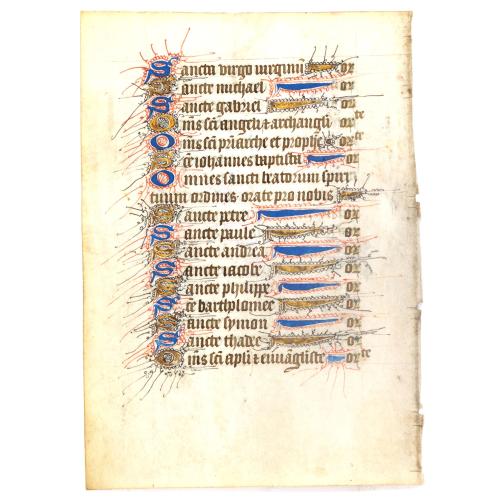 Sancta virgo virginū or
Sancte michael or
Sancte gabriel or
Oms sc̄i angeli & archangli orte
Oms sc̄i pr̄iarche et prophe orte
Sc̄e iohannes baptista or
Omnes sancti beatorum spirituum
tuum ordines orate pro nobis
Sancte petre or
Sancte paule or
Sancte andrea or
Sancte iacobe or
Sancte philippe or
Sc̄e bartholomee or
Sancte symon or
Sancte thadee or
Oms sc̄i apl̄i & euuāgliste orte